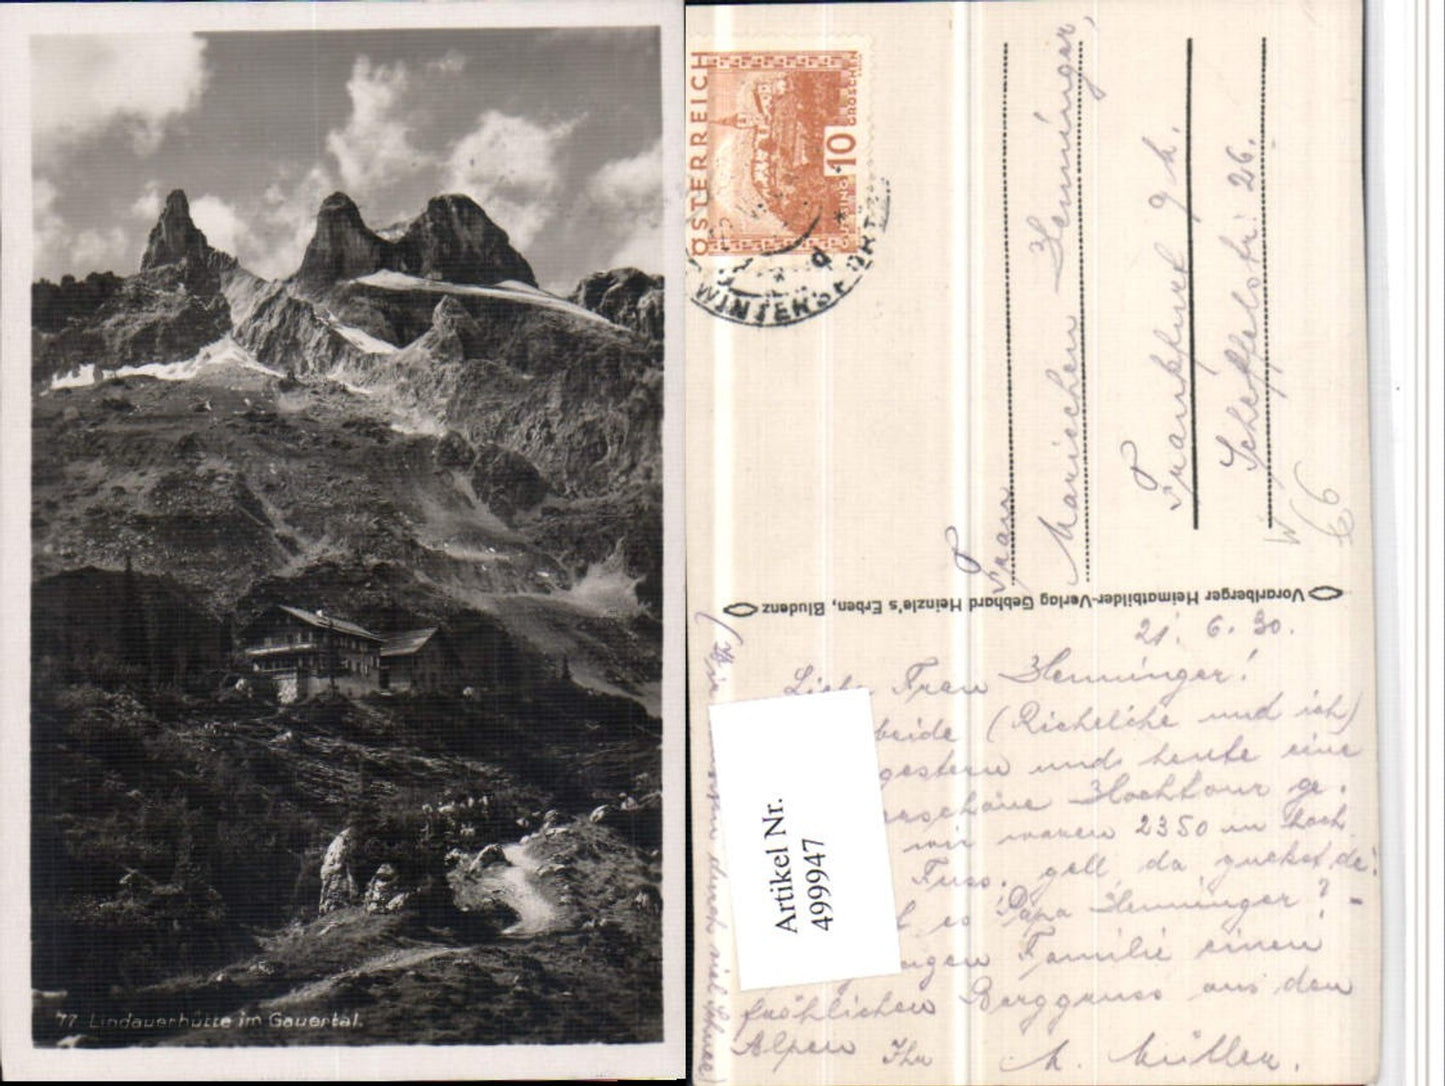 77 Lindauerhütte im Gauertal.
ÖSTERREICH
10
GROSCHEN
WINTERSPORT
Frau
Mariechen Henninger,
Frankfurt a/M.
Scheffelstr. 26.
W 66
Vorarlberger Heimatbilder-Verlag Gebhard Heinzle's Erben, Bludenz
21. 6. 30.
Liebe Frau Henninger!
beide (und ich)
gestern und heute eine
Hochtour ge-
wir waren 2350 m hoch
Fuss, gell da gucket
es Papa Henninger? -
Familie einen
fröhlichen Berggruss aus den
Alpen Ihr M. Müller.
durch viel Schnee)
Artikel Nr.
499947